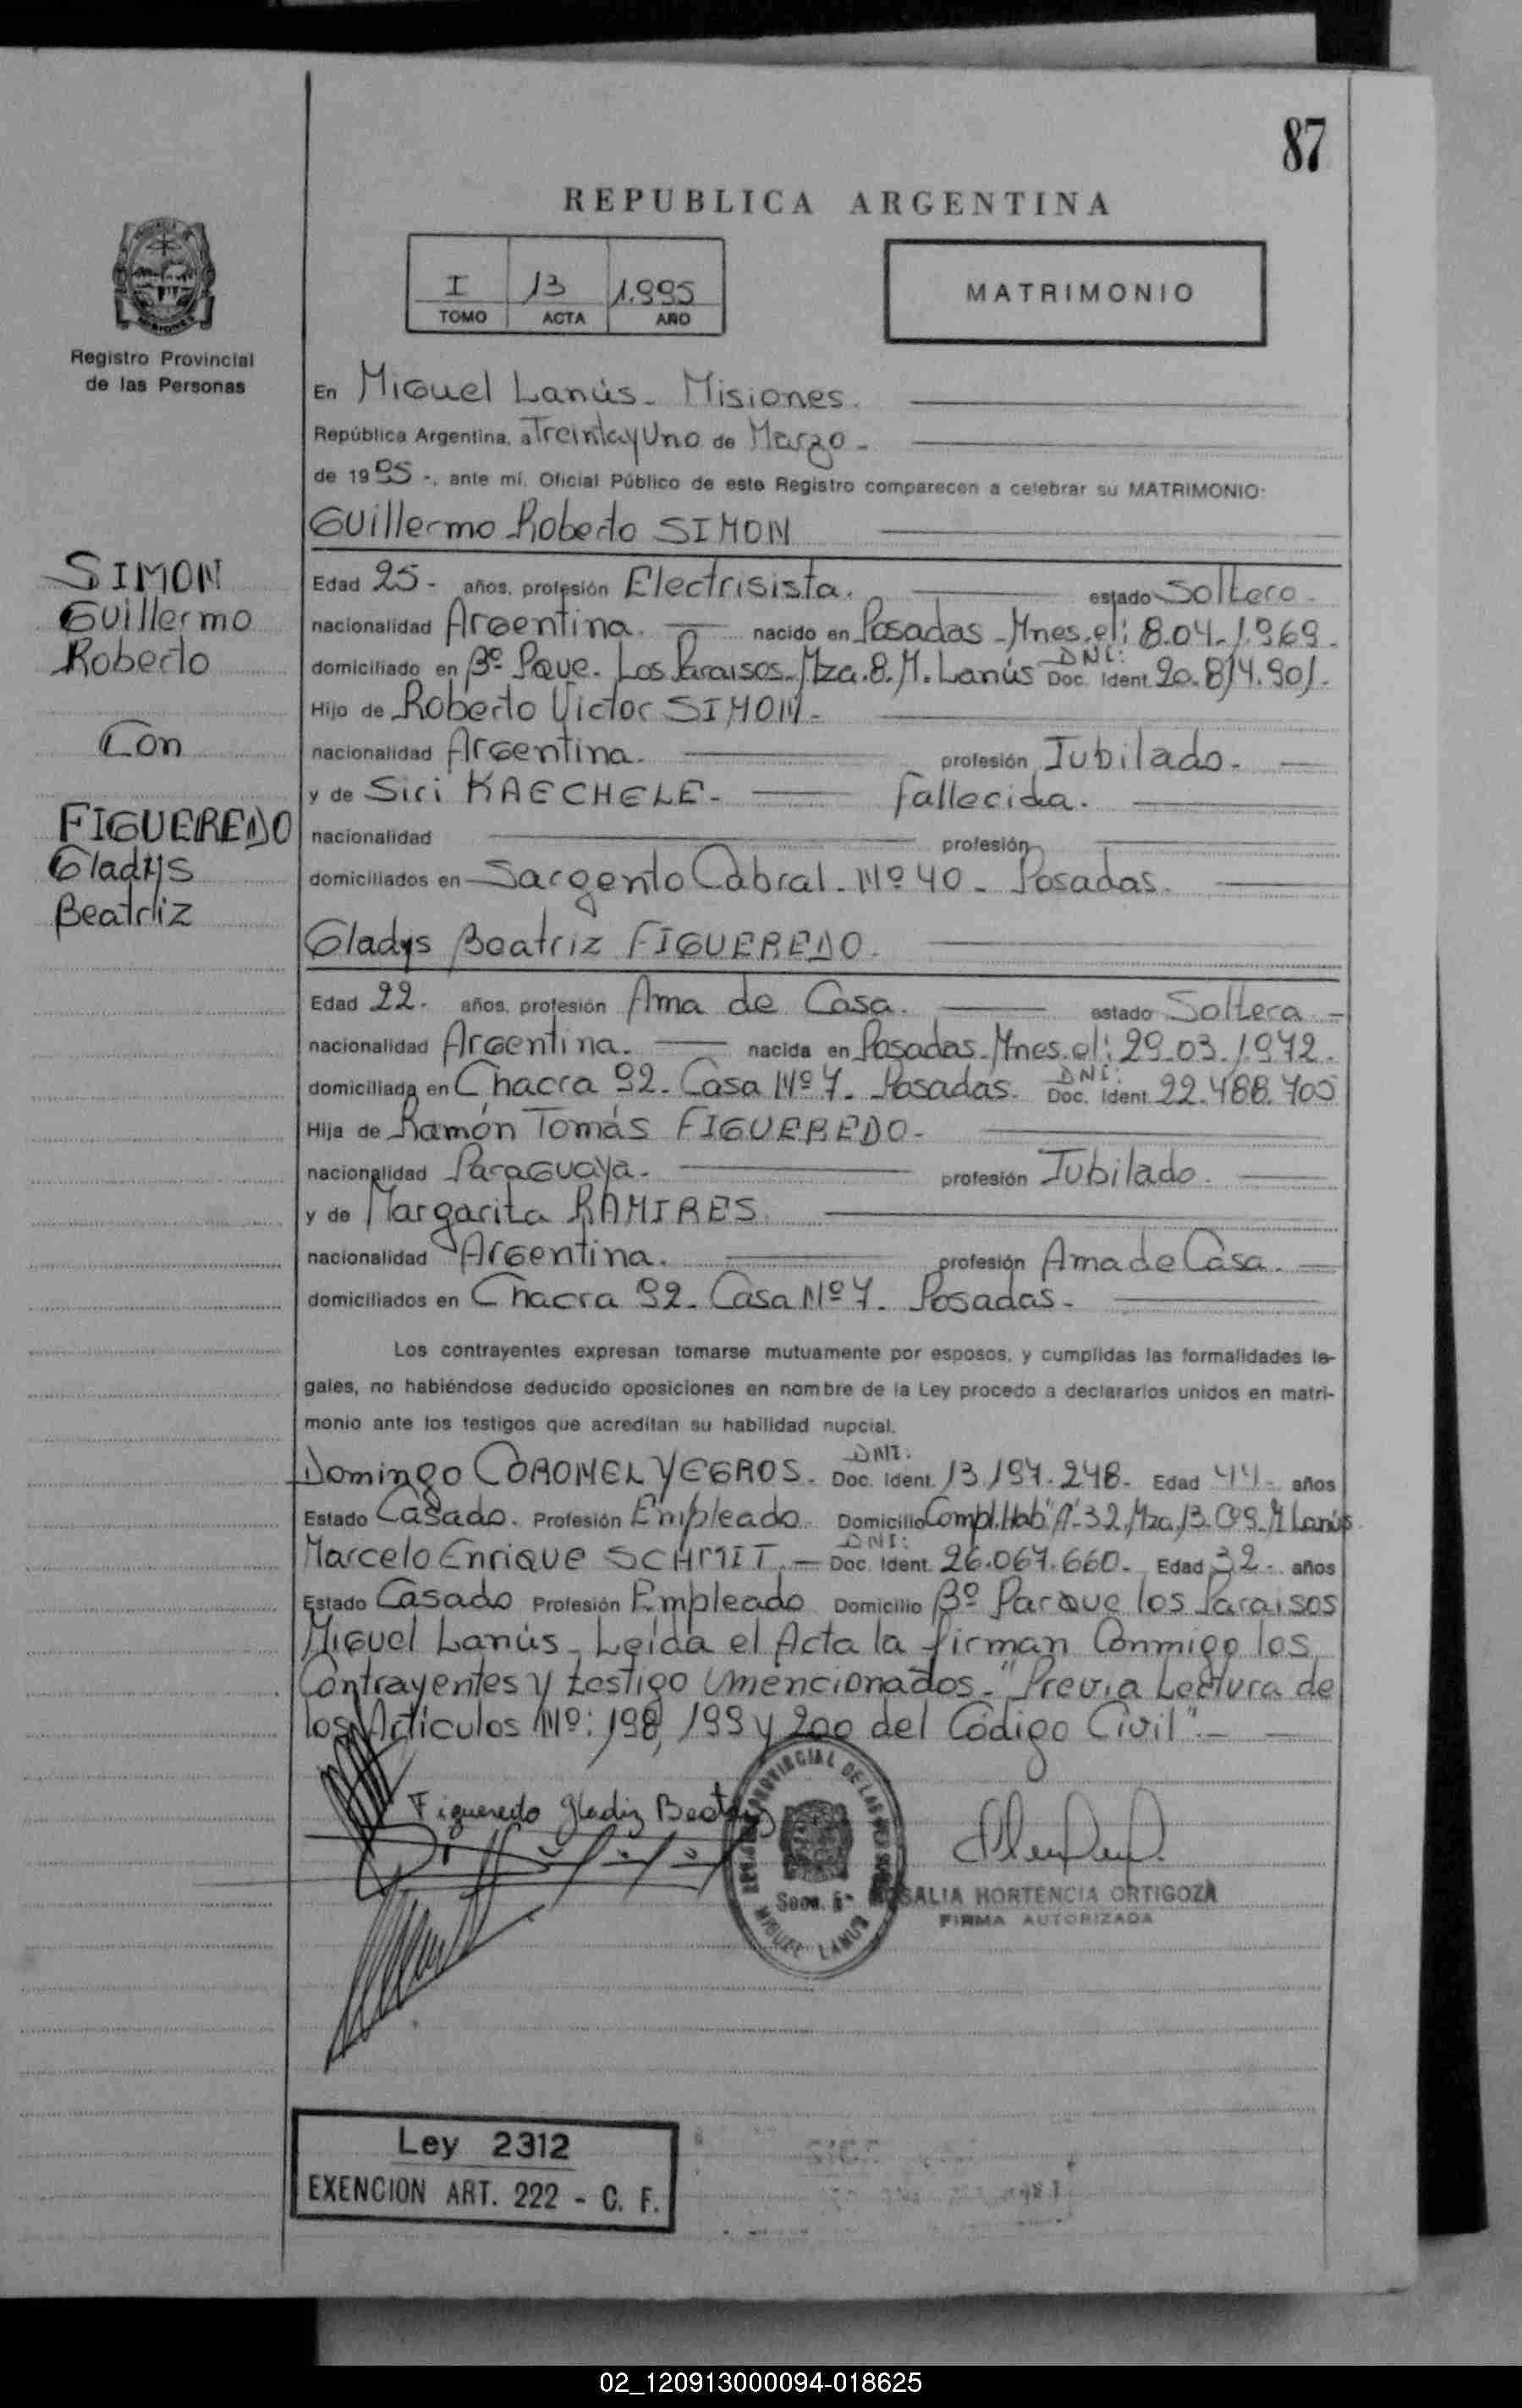 87
REPUBLICA ARGENTINA
I 13 1.995
TOMO ACTA AÑO
MATRIMONIO
Registro Provincial
de las Personas
En Miguel Lanús - Misiones.
República Argentina, a Treinta y Uno de Marzo -
de 1995 -, ante mí, Oficial Público de este Registro comparecen a celebrar su MATRIMONIO:
Guillermo Roberto SIMON
SIMON
Guillermo
Roberto
Con
FIGUEREDO
Gladys
Beatriz
Edad 25 - años, profesión Electrisista. estado Soltero -
nacionalidad Argentina. nacido en Posadas - Mnes. el: 8.04.1.969 -
domiciliado en Bº Pque. Los Paraisos. Mza. 8. M. Lanús DNI: Doc. Ident. 20.814.901.
Hijo de Roberto Victor SIMON -
nacionalidad Argentina. profesión Jubilado -
y de Siri KAECHELE - fallecida.
nacionalidad profesión
domiciliados en Sargento Cabral. Nº 40 - Posadas.
Gladys Beatriz FIGUEREDO.
Edad 22 - años, profesión Ama de Casa. estado Soltera -
nacionalidad Argentina. nacida en Posadas - Mnes. el: 29.03.1.972 -
domiciliada en Chacra 92 - Casa Nº 7 - Posadas. DNI: Doc. Ident. 22.488.705
Hija de Ramón Tomás FIGUEREDO -
nacionalidad Paraguaya - profesión Jubilado.
y de Margarita RAMIRES.
nacionalidad Argentina. profesión Ama de Casa.
domiciliados en Chacra 92 - Casa Nº 7 - Posadas -
Los contrayentes expresan tomarse mutuamente por esposos, y cumplidas las formalidades le-
gales, no habiéndose deducido oposiciones en nombre de la Ley procedo a declararlos unidos en matri-
monio ante los testigos que acreditan su habilidad nupcial.
Domingo CORONEL YEGROS - DNI. Doc. Ident. 13.197.248 - Edad 44 - años
Estado Casado. Profesión Empleado Domicilio Compl. Hab "A" - 32 Mza. 13. M Lanús
Marcelo Enrique SCHMIT. - DNI: Doc. Ident. 26.067.660 - Edad 32 - años
Estado Casado Profesión Empleado Domicilio Bº Parque los Paraisos
Miguel Lanús - Leída el Acta la firman Conmigo los
Contrayentes y testigo mencionados - "Previa Lectura de
los Artículos Nº: 198, 199 y 200 del Código Civil" -
Figueredo Gladiz Beatriz
REGISTRO PROVINCIAL DE LAS PERSONAS
Secc. 5ª
MIGUEL LANUS
ROSALIA HORTENCIA ORTIGOZA
FIRMA AUTORIZADA
Ley 2312
EXENCION ART. 222 - C. F.
02_120913000094-018625